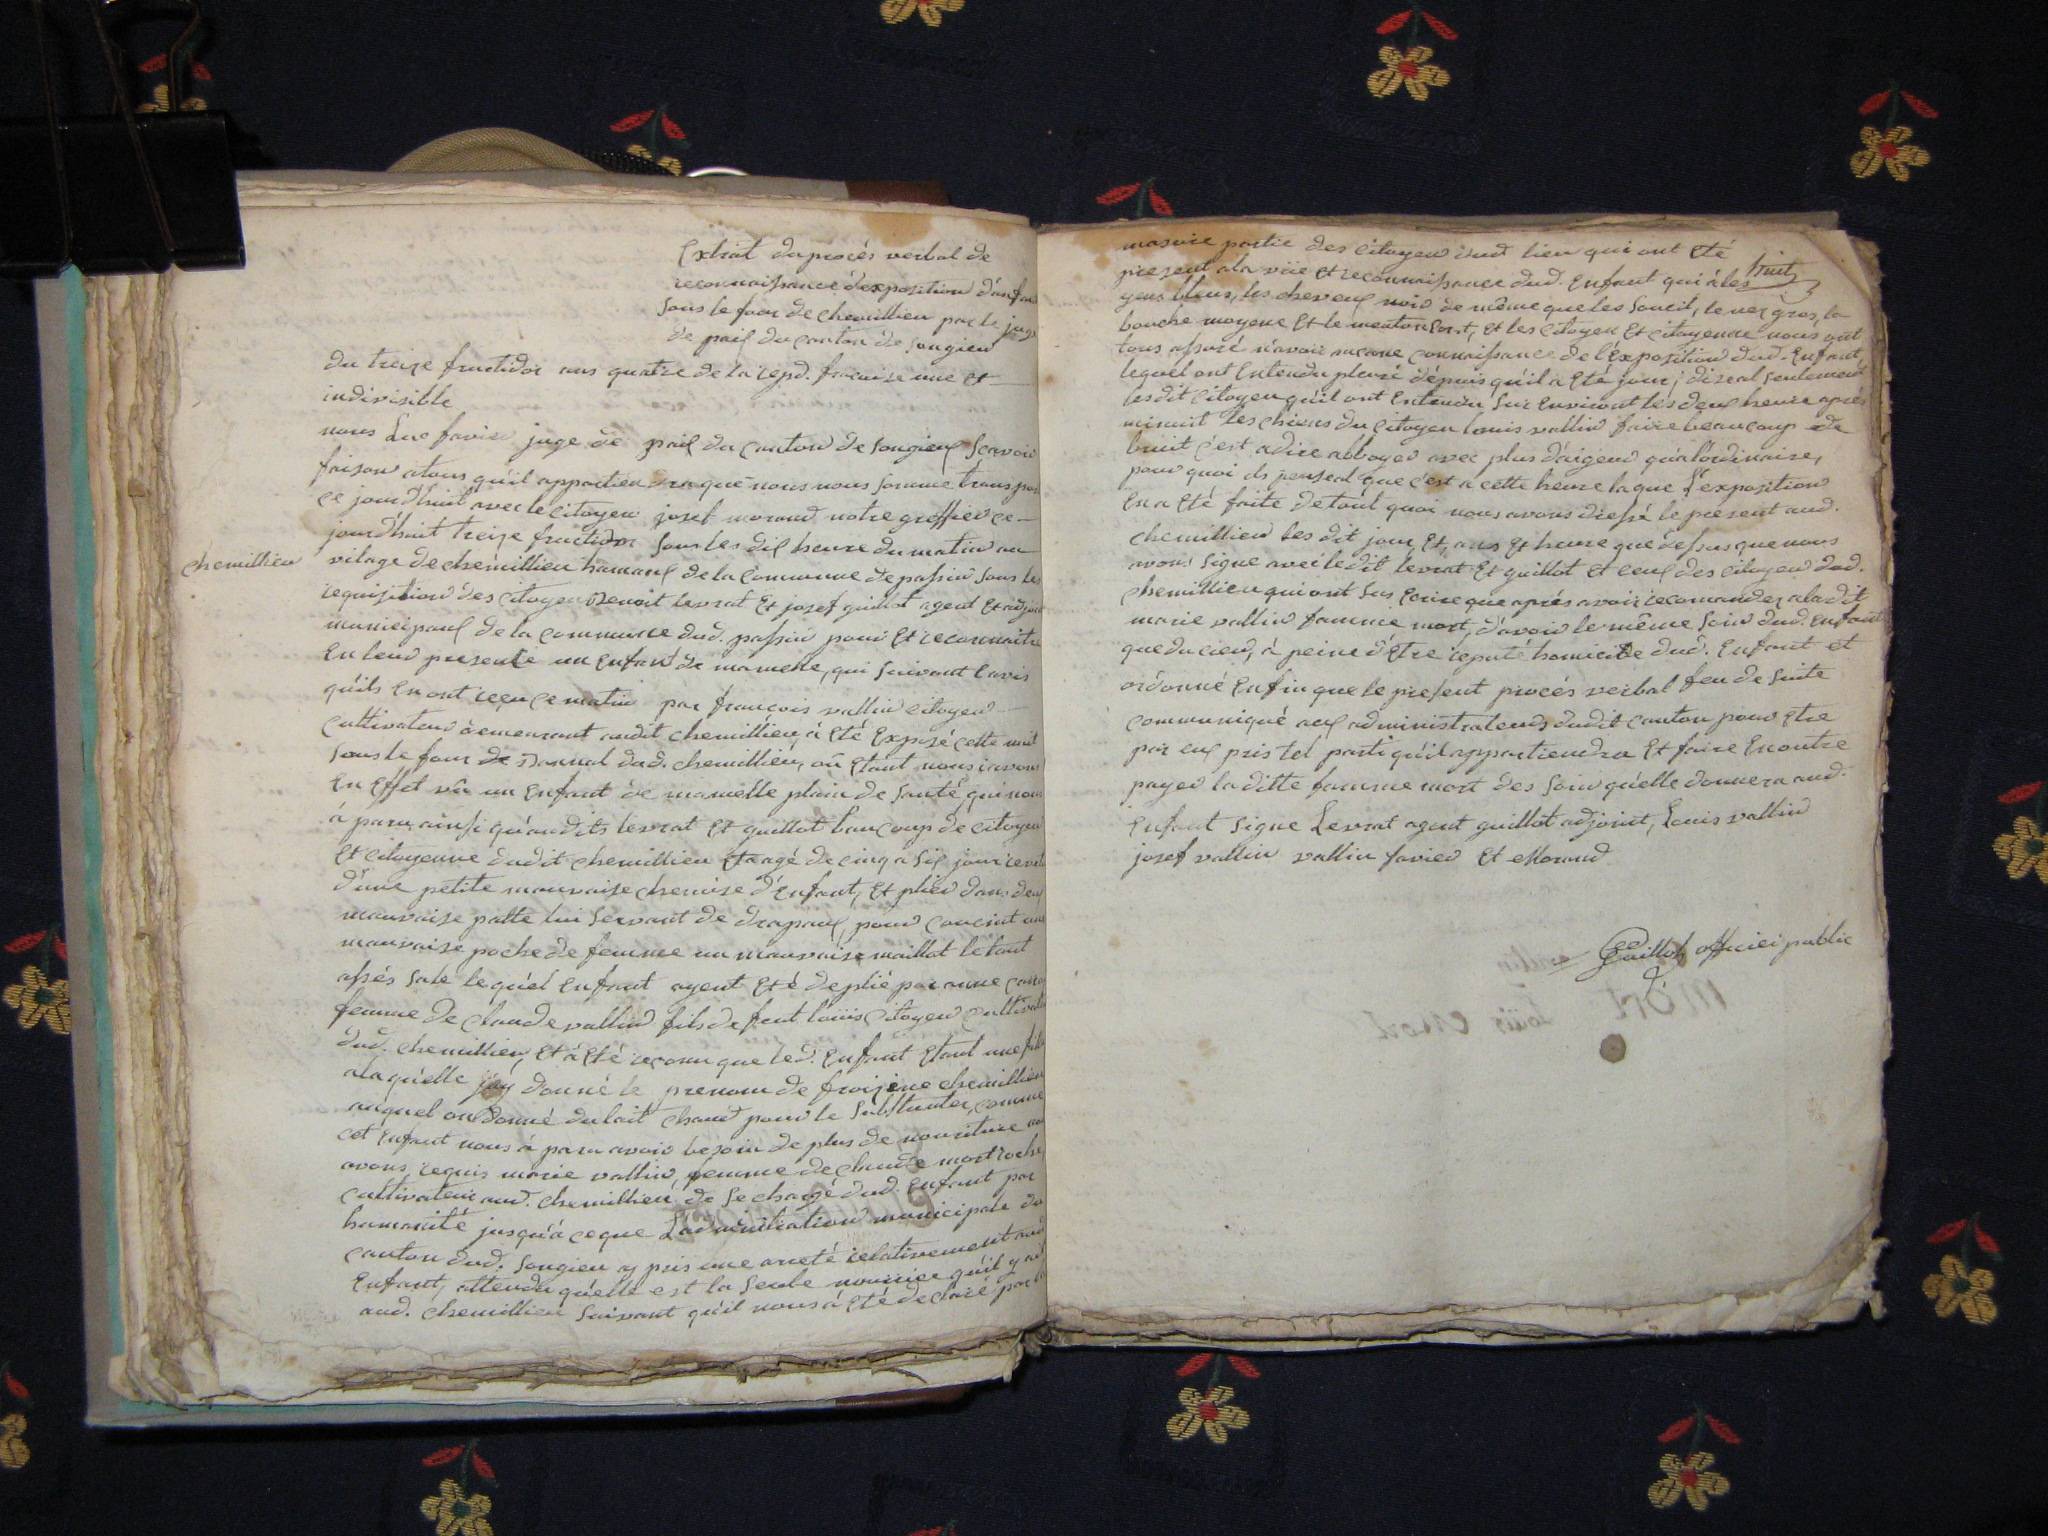 Extrait du procés verbal de
reconnaissance d'exposition d'enfan
sous le four de chemillieu par le juge
de paix du canton de Songieu
du treize fructidor ans quatre de la repd. francaise une et
indivisible
nous Luc favier juge de paix du canton de Songieux Scavoir
faison atous qu'il appartiendra que nous nous somme transpor
ce jourdhuit avec le Citoyen josef morand notre greffier ce
jourdhuit treize fructidor sous les dix heure du matin au
chemillieu
vilage de chemillieu hamaux de la Commune de passin sous les
requisition des citoyen Benoit levrat Et josef guillot agent Et adjoin
municipaux de la commune dud. passin pour Et reconnaitre
En leur presente un Enfant de mamelle, qui suivant l'avis
qu'ils En ont reçu ce matin par françois vallin citoyen
cultivateur demeurant audit chemillieu, à Eté Exposé cette nuit
sous le four de Bannal dud. chemillieu, ou Etant nous y avons
En Effet vû un Enfant de mamelle plain de santé, qui nous
à paru, ainsi qu'audits levrat Et guillot baucoup de citoyen
Et citoyenne dudit chemillieu Etre agé de cinq a six jour revet
d'une petite mauvaise chemise d'Enfant, Et plier dans deux
mauvaise patte lui servant de drapaux, pour coucint une
mauvaise poche de femme un mauvaise maillot le tout
assés sale lequel Enfant ayent Eté deplié par anne
femme de claude vallin fils de feut loüis Citoyen cultivate
dud. chemillieu, Et à Eté reconu que led. Enfant Etant une fille
a laquelle jay donné le prenom de froizine chemillieu
auquel on donné du lait chaud pour le Subtanter, comme
cet Enfant nous à paru avoir besoin de plus de nouriture nous
avons requis marie vallin, femme de claude mort roche
cultivateur aud. chemillieu de se chargé dud. Enfant par
humanité jusqu'à ce que L'administration municipale du
canton dud. Songieu y pris une areté relativement aud
Enfant, attendu qu'elle est la seule nourrice qu'il y ait
aud. chemillieu suivant qu'il nous à Eté declaré par la
masoire partie des Citoyen dud lieu qui ont Eté
present ala vüe Et reconnaissance dud. Enfant qui à les
huit
yeux bleus, les cheveux noir de même que les Sourcil, le nez gros, la
bouche moyene Et le menton Cort, Et les citoyen Et citoyenne nous ont
tous assuré n'avoir aucune connaissance de l'Exposition dud. Enfant,
lequel ont Entendu pleuré dépuis qu'il a Eté jour; diseat seulement
lesdit Citoyen qu'il ont Entendu sur Environt les deux heure aprés
minuit les chiens du Citoyen louis vallin faire beaucoup de
bruit c'est adire abboyer avec plus daigeur qu'a l'ordinaire,
pour quoi ils penseat que c'est a cette heure la que L'exposition
En a Eté faite De tout quoi nous avons dressé le present aud.
chemillieu les dit jour Et, ans Et heure que dessus que nous
avons signe avec ledit levrat Et guillot et ceux des citoyen dud.
chemillieu qui ont sus Ecrire que aprés avoir recomander a ladit
marie vallin famme mort, d'avoir le même Soin dud. Enfant
que du cien, à peine d'Etre reputé homicide dud. Enfant et
ordonné Enfin que le present procés verbal seu de suite
communiqué aux administrateurs dudit canton pour Etre
par eux pris tel parti qu'il appartiendra Et faire En outre
payer la ditte famme mort des soin qu'elle donnera aud.
Enfant Signe Levrat agent guillot adjoint, Louis vallin
josef vallin vallin favier Et Morand
Guillot officiei public